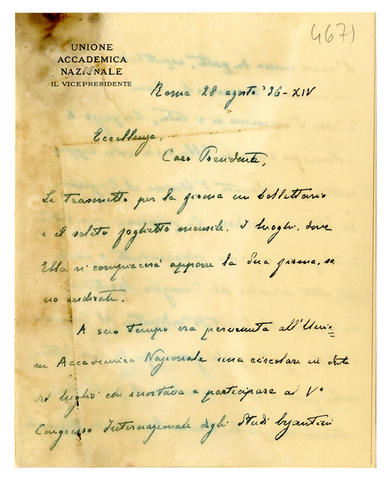 4671
UNIONE
ACCADEMICA
NAZIONALE
IL VICEPRESIDENTE
Roma 28 agosto '36-XIV
Eccellenza,
Caro Presidente,
Le trasmetto per la firma un bollettario
e il solito foglietto mensile. I luoghi, dove
Ella si compiacerà apporre la Sua firma, so
no indicati.
A suo tempo era pervenuta all'Unio=
ne Accademica Nazionale una circolare in data
luglio che invitava a partecipare al V°
Congresso Internazionale degli Studi byzantini